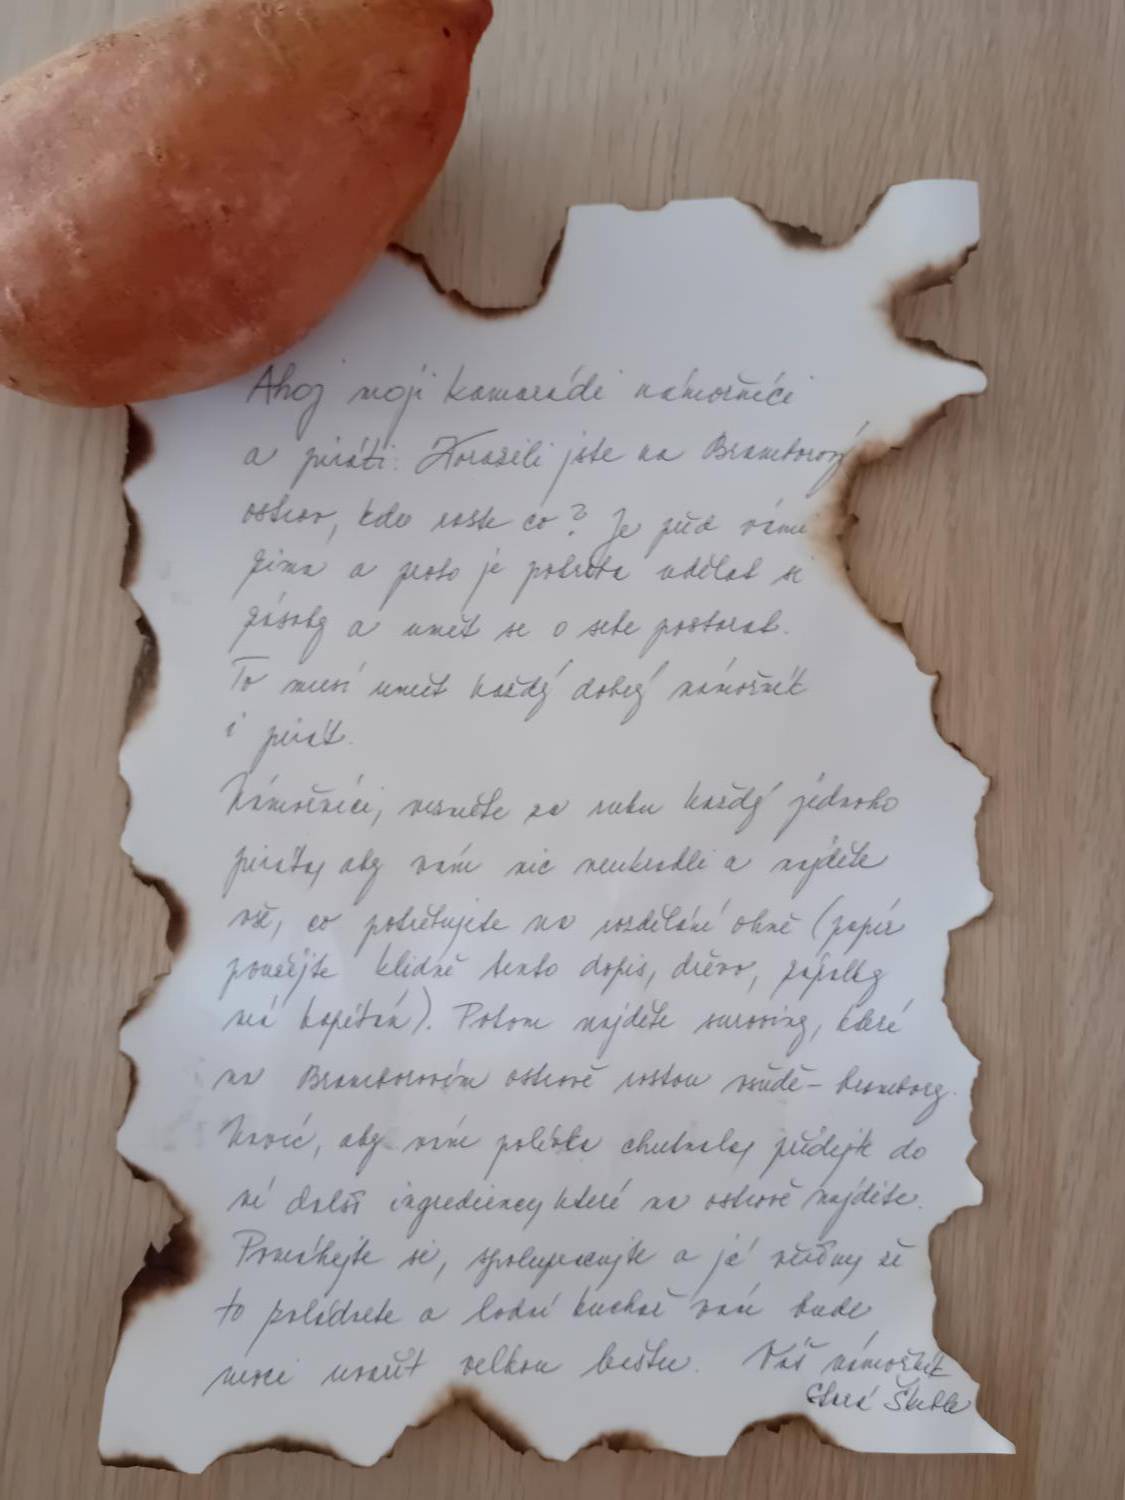 Ahoj moji kamarádi námořníci
a piráti. Dorazili jste na Bramborový
ostrov, kdo roste co? Je před vámi
zima a proto je potřeba udělat si
zásoby a umět se o sebe postarat.
To musí umět každý dobrý námořník
i pirát.
Námořníci, vezměte za ruku každý jednoho
piráta, aby vám nic neukradli a najděte
vše, co potřebujete na rozdělání ohně (papír
použijte klidně tento dopis, dřevo, zápalky
má kapitán). Potom najděte suroviny, které
na Bramborovém ostrově rostou všude - brambory.
Navíc, aby vám polévka chutnala, přidejte do
ní další ingredience, které na ostrově najdete.
Pomáhejte si, spolupracujte a já věřím, že
to zvládnete a lodní kuchař vám bude
moci uvařit velkou baštu. Váš námořník
Stará Škeble